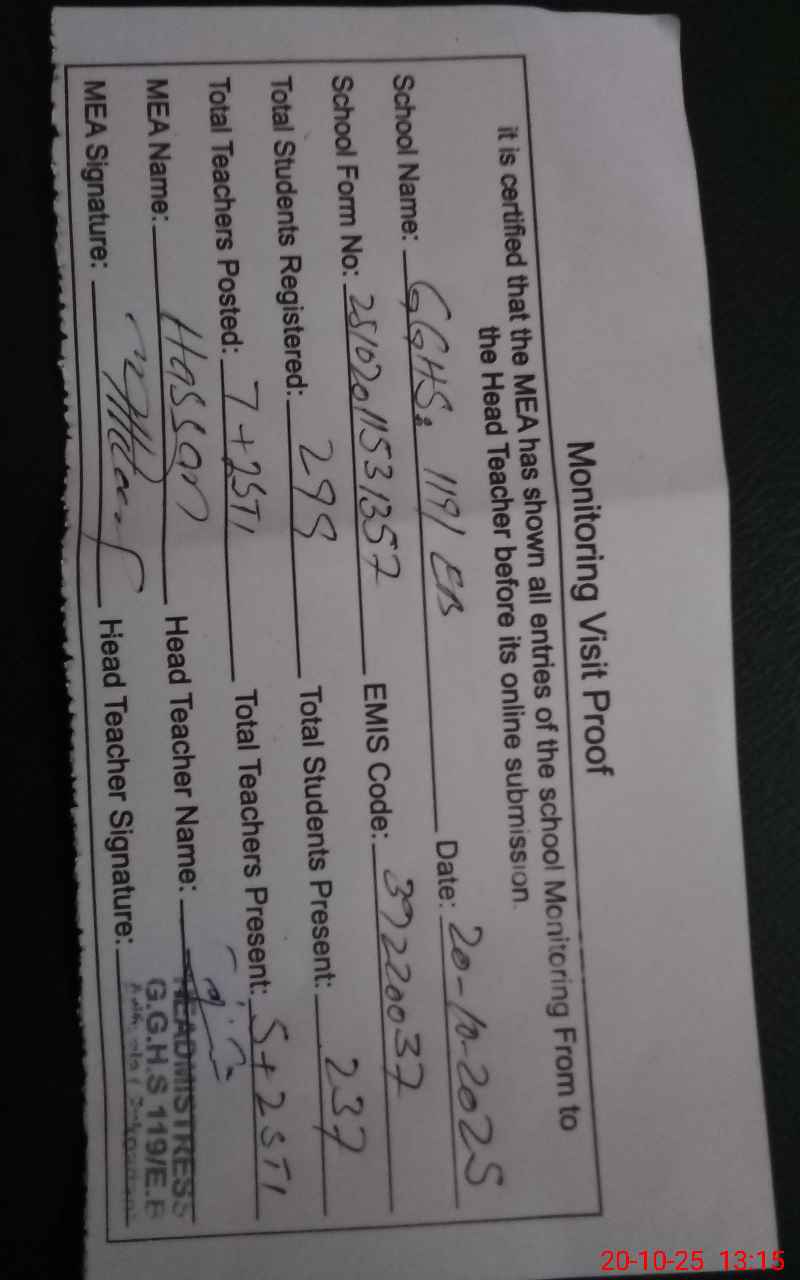 Monitoring Visit Proof
it is certified that the MEA has shown all entries of the school Monitoring From to
the Head Teacher before its online submission.
School Name: GGHS: 119/EB Date: 20-10-2025
School Form No: 25102011531357 EMIS Code: 39220037
Total Students Registered: 299 Total Students Present: 237
Total Teachers Posted: 7+2STI Total Teachers Present: 5+2STI
MEA Name: Hassan Head Teacher Name: HEADMISTRESS
G.G.H.S 119/E.B
MEA Signature: Head Teacher Signature:
20-10-25 13:15